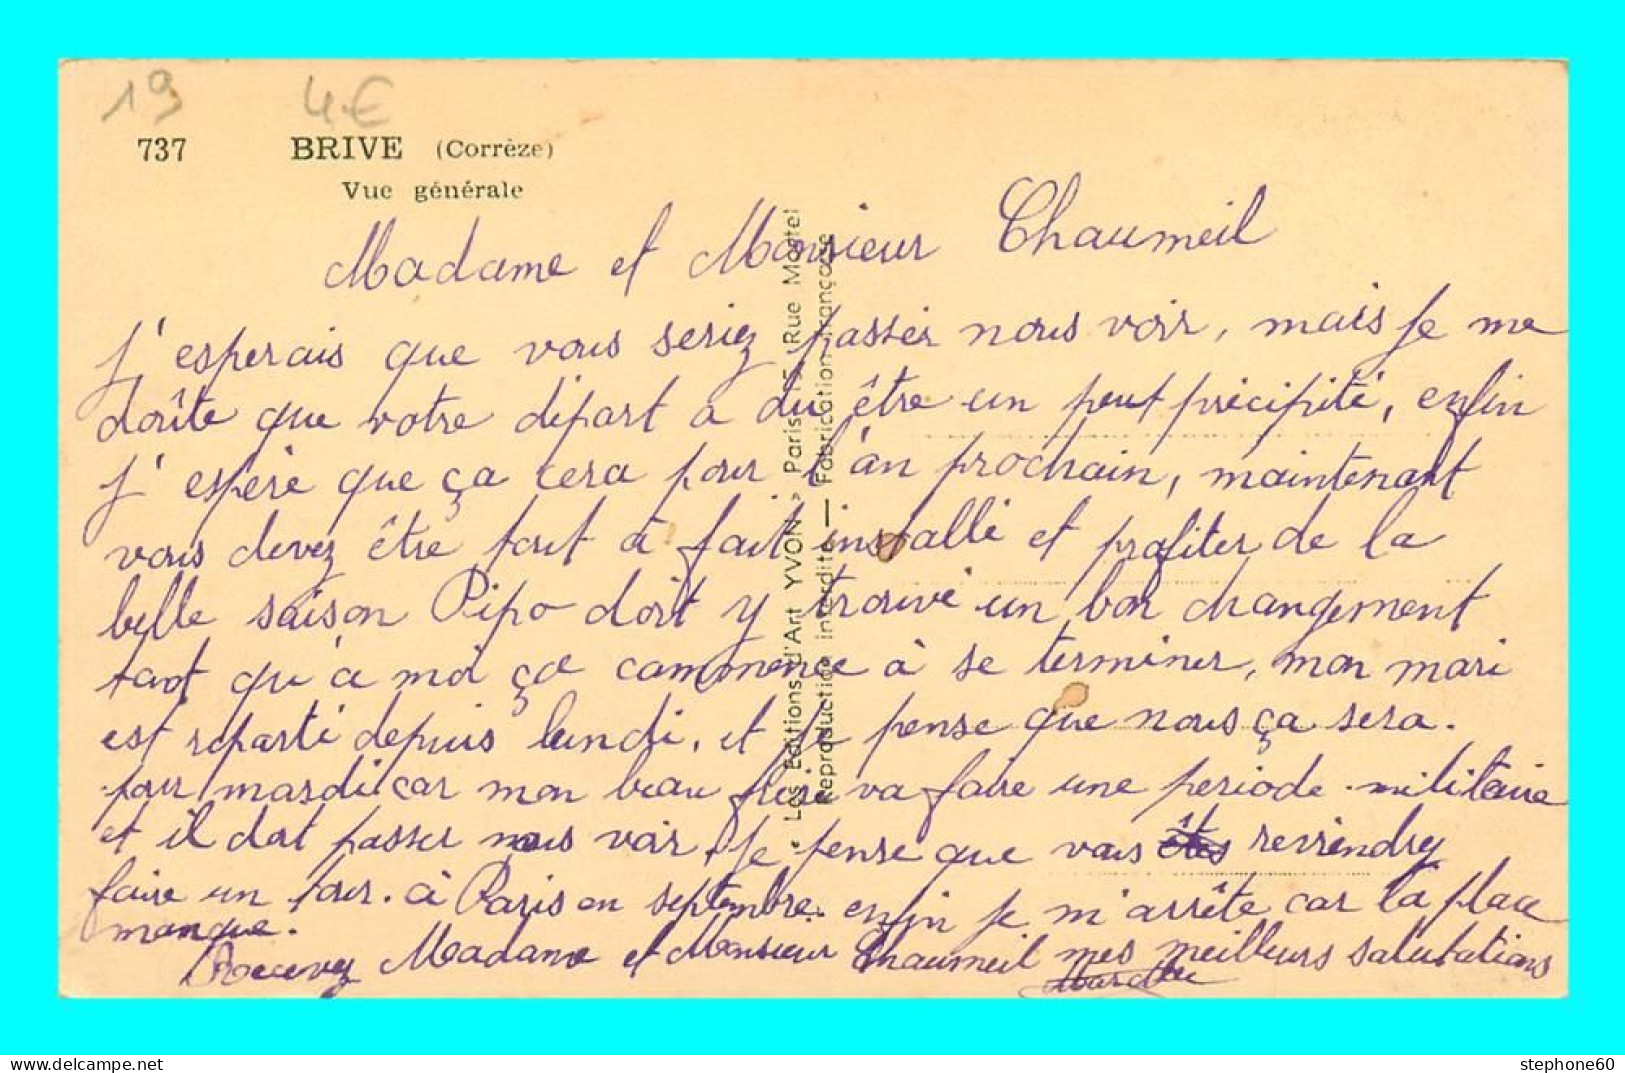 19 4.€
737 BRIVE (Corrèze)
Vue générale
Madame et Monsieur Chaumeil
J'esperais que vous seriez passer nous voir, mais je me
doûte que votre départ a du être un peut précipité, enfin
j'espére que ça cera pour l'an prochain, maintenant
vous devez être tout à fait installé et profiter de la
belle saison Pipo doit y trouvé un bon changement
tant qu'à moi ça commence à se terminer, mon mari
est reparti depuis lundi, et je pense que nous ça sera.
pour mardi car mon beau frère va faire une periode militaire
et il doit passer nous voir. Je pense que vous êtes reviendrez
faire un tour. à Paris en septembre. enfin je m'arrête car la place
manque.
Recevez Madame et Monsieur Chaumeil mes meilleurs salutations
« Les Editions d'Art YVON » Paris 15, Rue Martel
Reproduction interdite — Fabrication Française
stephone60